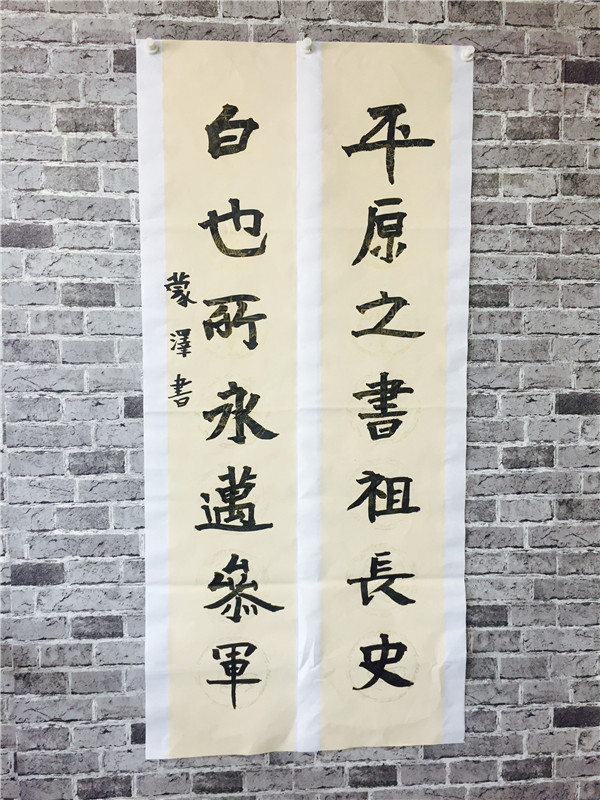 平原之書祖長史
白也所永邁叅軍
蒙澤書